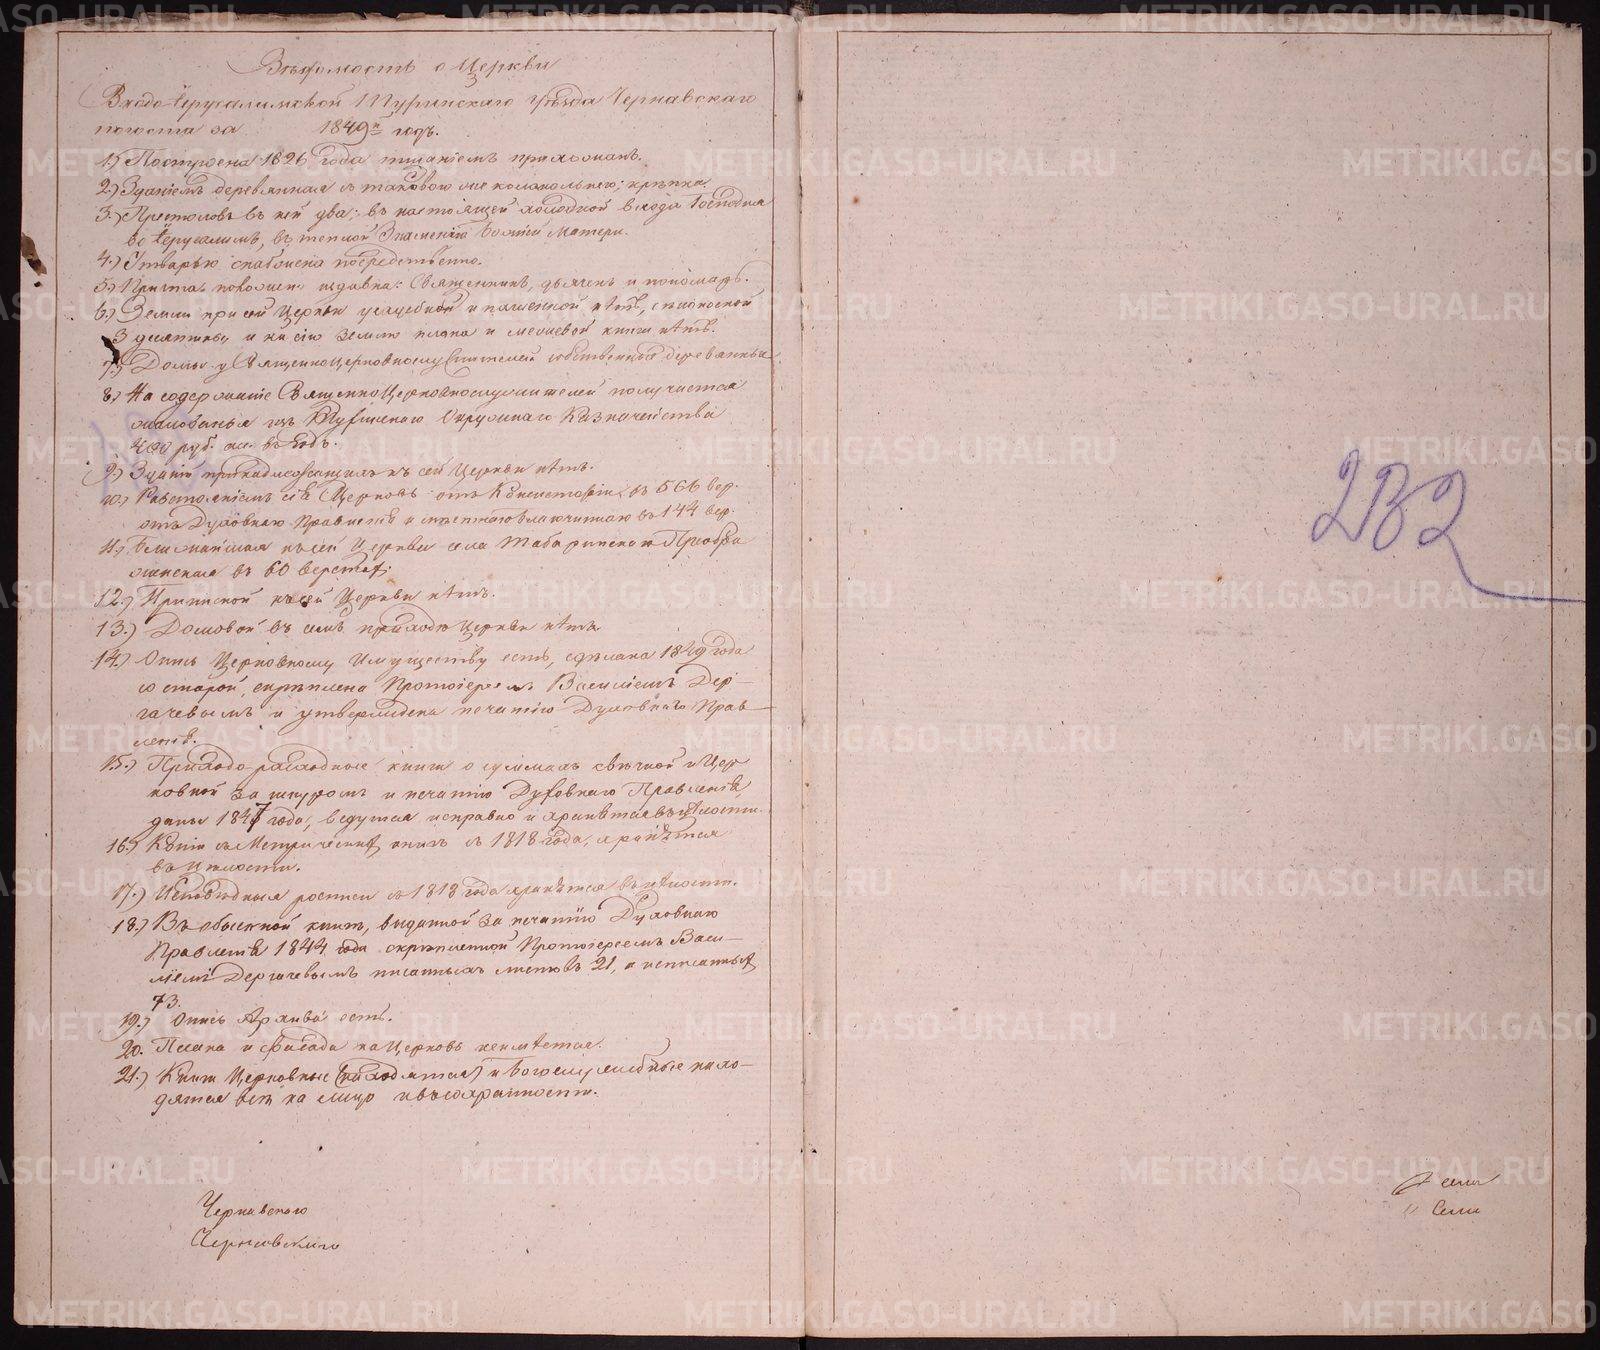 Вѣдомость о Церкви
Входо-Іерусалимской Туринскаго уѣзда Чернавскаго
погоста за 1849й годъ.
1.) Построена 1826 года тщаніемъ прихожанъ.
2.) Зданіемъ деревянная съ таковою же колокольнею; крѣпка.
3.) Престоловъ въ ней два: въ настоящей холодной входа Господня
во Іерусалимъ, въ теплой Знаменія Божіей Матери.
4.) Утварью снабжена посредственно.
5.) Причта положено издавна: Священникъ, дьячекъ и пономарь.
6.) Земли при сей Церкви усадебной и пашенной нѣтъ, сѣнокосной
3 десятины и на сію землю плана и межевой книги нѣтъ.
7.) Домы у Священноцерковнослужителей собственные деревянные.
8.) На содержаніе Священноцерковнослужителей получается
жалованья изъ Туринскаго Окружнаго Казначейства
400 руб. ас. въ годъ.
9.) Зданій принадлежащихъ къ сей Церкви нѣтъ.
10.) Разстояніемъ сія Церковь отъ Консисторіи въ 566 вер.
отъ Духовнаго Правленія и мѣстнаго благочиннаго въ 144 вер.
11.) Ближайшая къ сей Церкви села Табаринскаго Преобра
женская въ 60 верстахъ.
12.) Приписной къ сей Церкви нѣтъ.
13.) Домовой въ семъ приходѣ Церкви нѣтъ.
14.) Опись Церковному Имуществу есть, сдѣлана 1849 года
со старой, скрѣплена Протоіереемъ Василіемъ Дер-
гачевымъ и утверждена печатію Духовнаго Прав-
ленія.
15.) Приходо-расходные книги о суммахъ свѣчной и Цер
ковной за шнуромъ и печатію Духовнаго Правленія,
даны 1847 года, ведутся исправно и хранятся въ цѣлости.
16.) Копіи съ Метрическихъ книгъ съ 1818 года, хранятся
въ цѣлости.
17.) Исповѣдныя росписи съ 1818 года хранятся въ цѣлости.
18.) Въ обыскной книгѣ, выданной за печатію Духовнаго
Правленія 1844 года скрѣпленной Протоіереемъ Васи-
ліемъ Дергачевымъ писанныхъ листовъ 21, а неписанныхъ
73.
19.) Опись Архива есть.
20. Плана и фасада на Церковь неимѣется.
21.) Книги Церковные (находятся) и богослужебные нахо-
дятся всѣ на лицо и въ сохранности.
Чернавскаго
Чернавскаго
232
села
Села